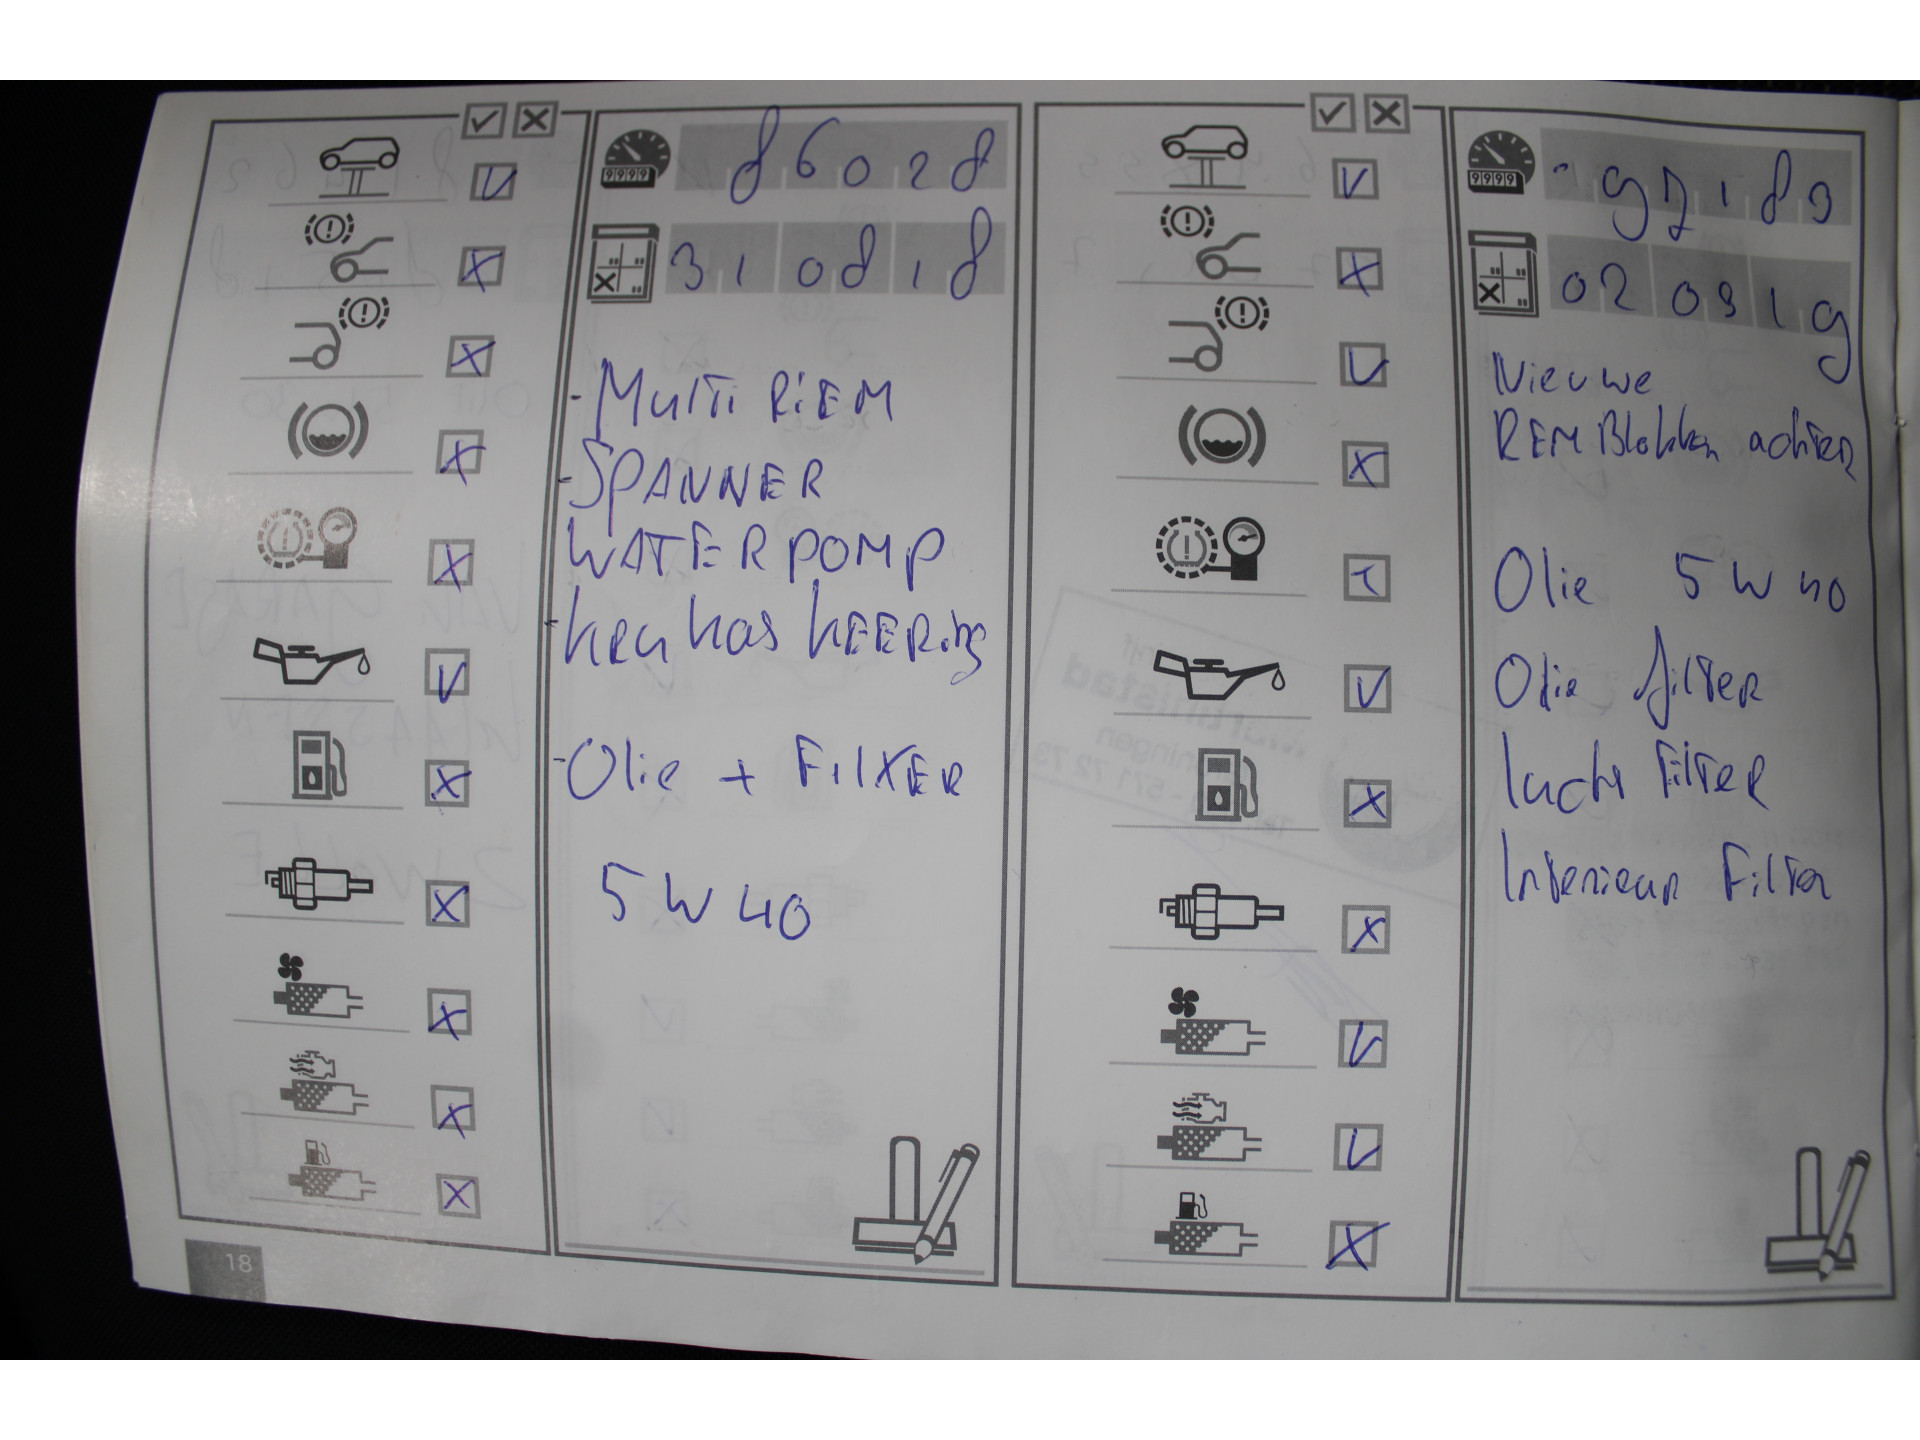 86028
310818
- MULTI RIEM
- SPANNER
WATERPOMP
- KRUKAS KEERING
- Olie + FILTER
5W40
18
97183
020919
Nieuwe
REMBlokken achter
Olie 5W40
Olie filter
lucht FilTER
Interieur Filter